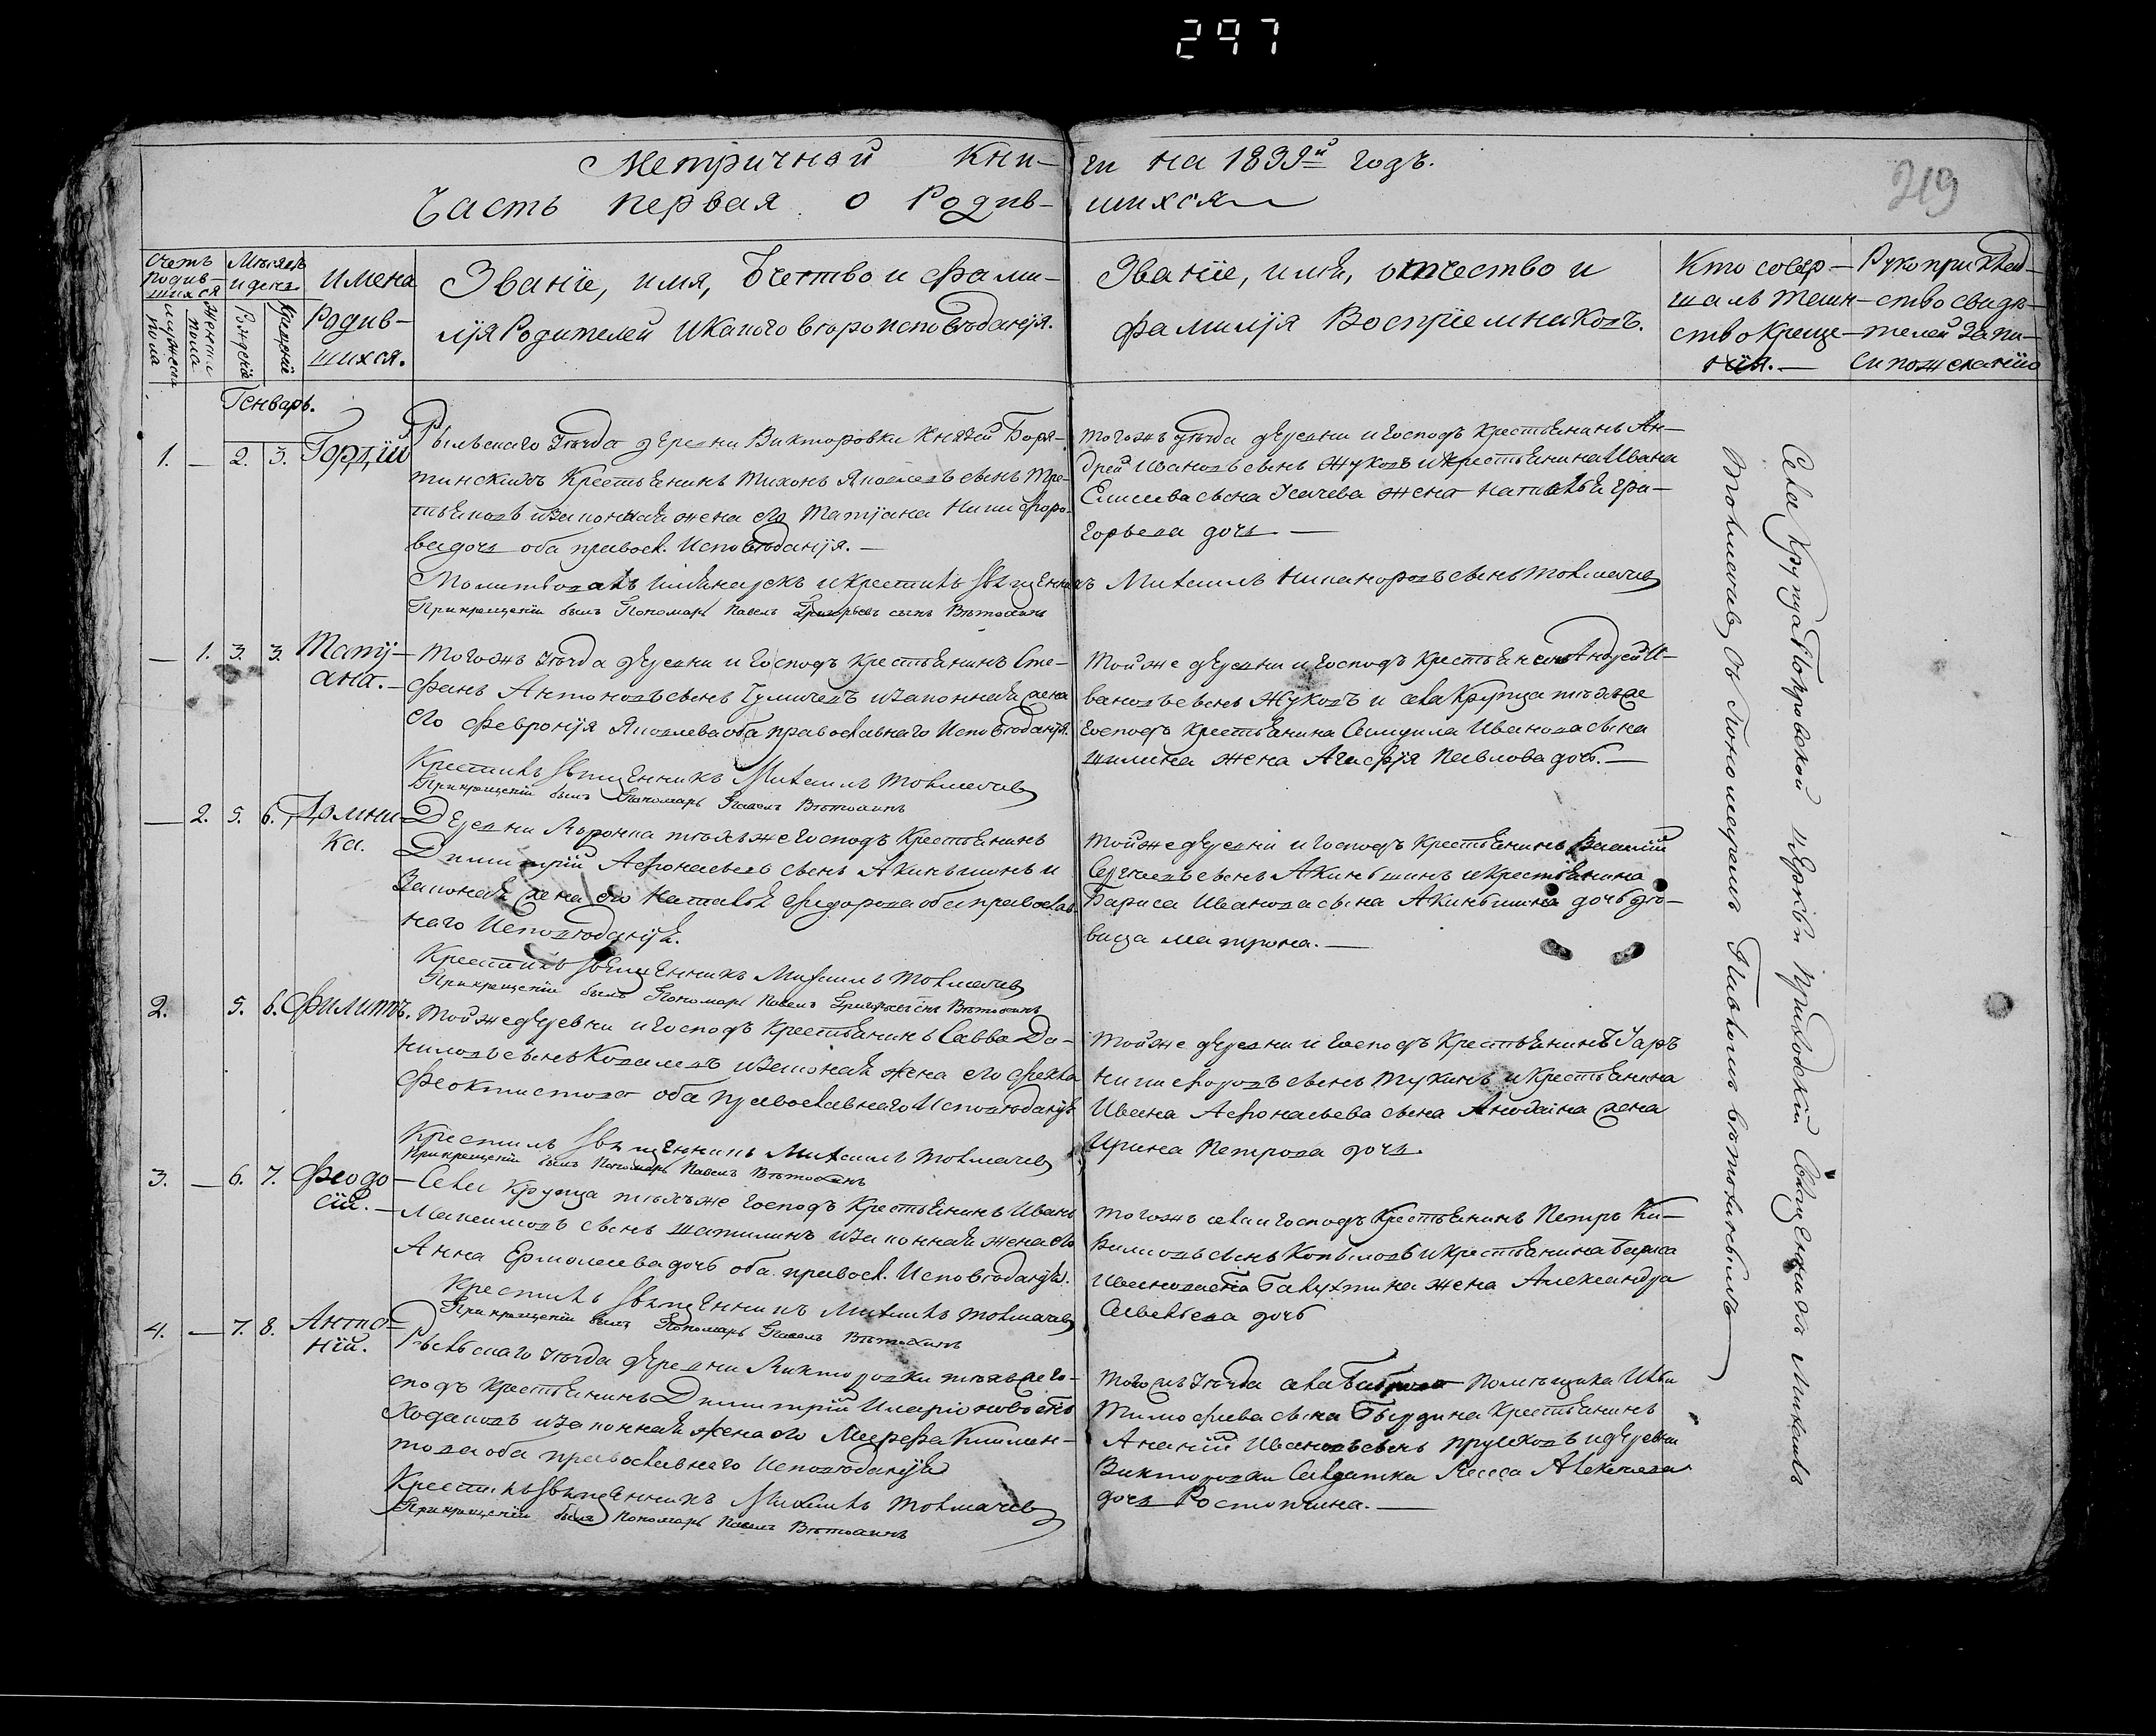 297
Метричной кни-
ги на 1839й годъ.
219
Часть первая о Родив-
шихся
Счетъ родив-
шихся
мужеска пола
женска пола
Мѣсяцъ
и день
Рожденія
Крещенія
имена
Родив-
шихся.
Званіе, имя, Отчество и фами-
лія Родителей и какого вѣроисповѣданія.
Званіе, имя, отчество и
фамилія Воспріемниковъ.
Кто совер-
шалъ таин-
ство креще-
нія.
Рукоприклад-
ство свидѣ-
телей запи-
си по желанію
Генварь.
1. — 2. 3. Гордій
Рыльскаго уѣзда деревни Викторовки Князей Боря-
тинскихъ Крестьянинъ Тихонъ Яковлевъ сынъ Тре-
и законная жена его Татіана Никифоро-
ва дочь оба правосл. Исповѣданія. —
Молитвовалъ имянарекъ и крестилъ священникъ Михаилъ Никаноровъ сынъ Толмачевъ
При крещеніи былъ Пономарь Павелъ Григорьевъ сынъ Вѣтохинъ
тогожъ уѣзда деревни и господъ крестьянинъ Ан-
дрей Ивановъ сынъ Жуковъ и крестьянина Ивана
Елисеева сына жена Наталья Гри-
горьева дочь. —
— 1. 3. 3. Таті-
ана. —
Тогожъ уѣзда деревни и господъ крестьянинъ Сте-
фанъ Антоновъ сынъ и законная жена
его Февронія Яковлева оба православнаго Исповѣданія.
Крестилъ священникъ Михаилъ Толмачевъ
При крещеніи былъ Пономарь Павелъ Вѣтохинъ
Той же деревни и господъ крестьянинъ Андрей И-
вановъ сынъ Жуковъ и села Крупца тѣхъ же
господъ крестьянина Ивана сына
жена Агафія Павлова дочь. —
— 2. 5. 6. Домни-
ка.
Деревни тѣхъ же господъ Крестьянинъ
Димитрій Афонасьевъ сынъ Акиньшинъ и
законная жена его Наталья Федорова оба православ-
наго Исповѣданія.
Крестилъ священникъ Михаилъ Толмачевъ
При крещеніи былъ Пономарь Павелъ Григорьевъ сынъ Вѣтохинъ
Той же деревни и господъ крестьянинъ
Сергѣевъ сынъ Акиньшинъ и крестьянина
Бориса Иванова сына Акиньшина дочь дѣ-
вица Матрона. —
2. 5. 6. Филипъ.
Той же деревни и господъ крестьянинъ Савва Да-
ниловъ сынъ Ковалевъ и законная жена его Фекла
Феоктистова оба православнаго Исповѣданія
Крестилъ священникъ Михаилъ Толмачевъ
При крещеніи былъ Пономарь Павелъ Вѣтохинъ
Той же деревни и господъ Крестьянинъ
Никифоровъ сынъ и крестьянина
Ивана Афонасьева сына жена
Ирина Петрова дочь.
3. — 6. 7. Феодо-
сій. —
Села Крупца тѣхъ же господъ Крестьянинъ Иванъ
Максимовъ сынъ Шатилинъ и законная жена его
Анна Ермолаева дочь оба правосл. Исповѣданія.
Крестилъ священникъ Михаилъ Толмачевъ
При крещеніи былъ Пономарь Павелъ Вѣтохинъ
Тогожъ села и господъ крестьянинъ Петръ Ки-
сынъ Копыловъ и крестьянина Бориса
жена Александра
Савельева дочь
4. — 7. 8. Анто-
ній.
Рыльскаго уѣзда деревни Викторовки тѣхъ же го-
сподъ крестьянинъ Димитрій Иларіоновъ сынъ
Ходаковъ и законная жена его Марфа Климен-
това оба православнаго Исповѣданія
Крестилъ священникъ Михаилъ Толмачевъ
При крещеніи былъ Пономарь Павелъ Вѣтохинъ
Тогожъ уѣзда села помѣщика
Тимофеева сына крестьянинъ
Ананій Ивановъ сынъ и деревни
Викторовки Солдатка
дочь Ростопчина. —
Села Крупца Покровской церкви приходскій Священникъ Михаилъ
Толмачевъ съ Пономаремъ Павломъ Вѣтохинымъ